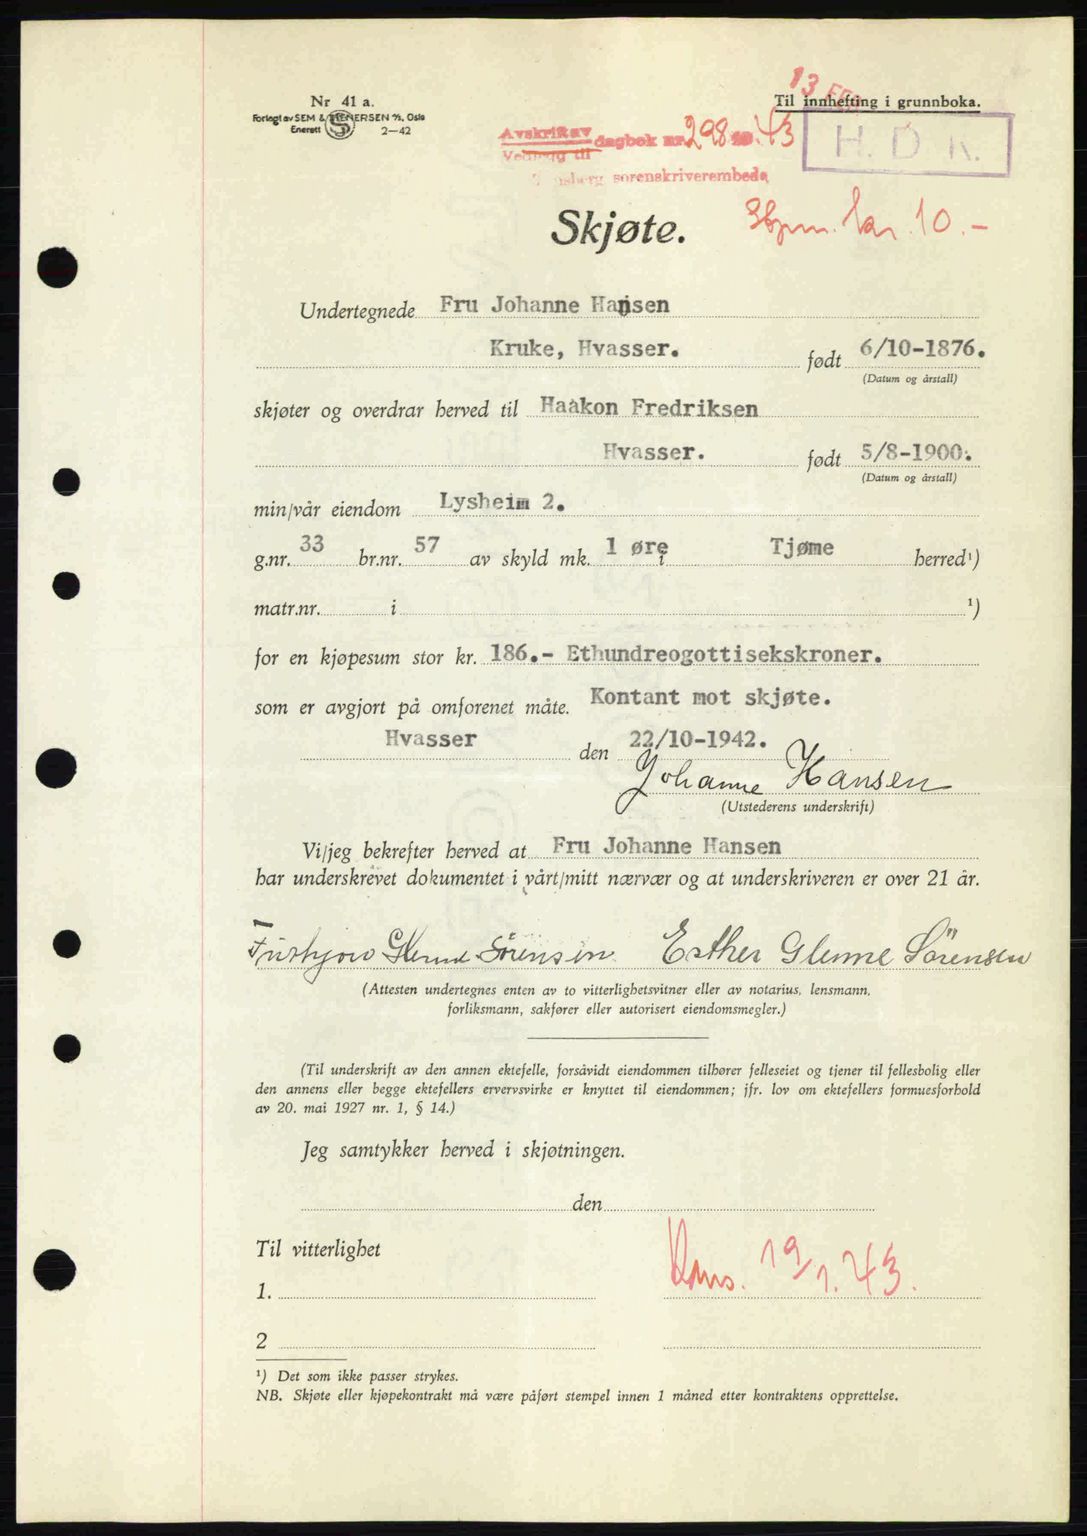 Nr 41 a.
Forlagt av SEM & STENERSEN A/S, Oslo
Enerett 2—42
13 FEB
Til innhefting i grunnboka.
Avskrift av
Vedlegg til dagbok nr. 298 19 43
sorenskriverembede
H. D. K.
Skjøte.
kr. 10.-
Undertegnede Fru Johanne Hansen
Kruke, Hvasser. født 6/10-1876.
(Datum og årstall)
skjøter og overdrar herved til Haakon Fredriksen
Hvasser. født 5/8-1900.
(Datum og årstall)
min/vår eiendom Lysheim 2.
g.nr. 33 br.nr. 57 av skyld mk. 1 øre i Tjøme herred¹)
matr.nr. i ¹)
for en kjøpesum stor kr. 186.- Ethundreogottisekskroner.
som er avgjort på omforenet måte. Kontant mot skjøte.
Hvasser den 22/10-1942.
Johanne Hansen
(Utstederens underskrift)
Vi/jeg bekrefter herved at Fru Johanne Hansen
har underskrevet dokumentet i vårt/mitt nærvær og at underskriveren er over 21 år.
Sörensen Esther Glenne Sörensen
(Attesten undertegnes enten av to vitterlighetsvitner eller av notarius, lensmann,
forliksmann, sakfører eller autorisert eiendomsmegler.)
(Til underskrift av den annen ektefelle, forsåvidt eiendommen tilhører felleseiet og tjener til fellesbolig eller
den annens eller begge ektefellers ervervsvirke er knyttet til eiendommen; jfr. lov om ektefellers formuesforhold
av 20. mai 1927 nr. 1, § 14.)
Jeg samtykker herved i skjøtningen.
den
Til vitterlighet
19/1.43.
1.
2
¹) Det som ikke passer strykes.
NB. Skjøte eller kjøpekontrakt må være påført stempel innen 1 måned etter kontraktens opprettelse.